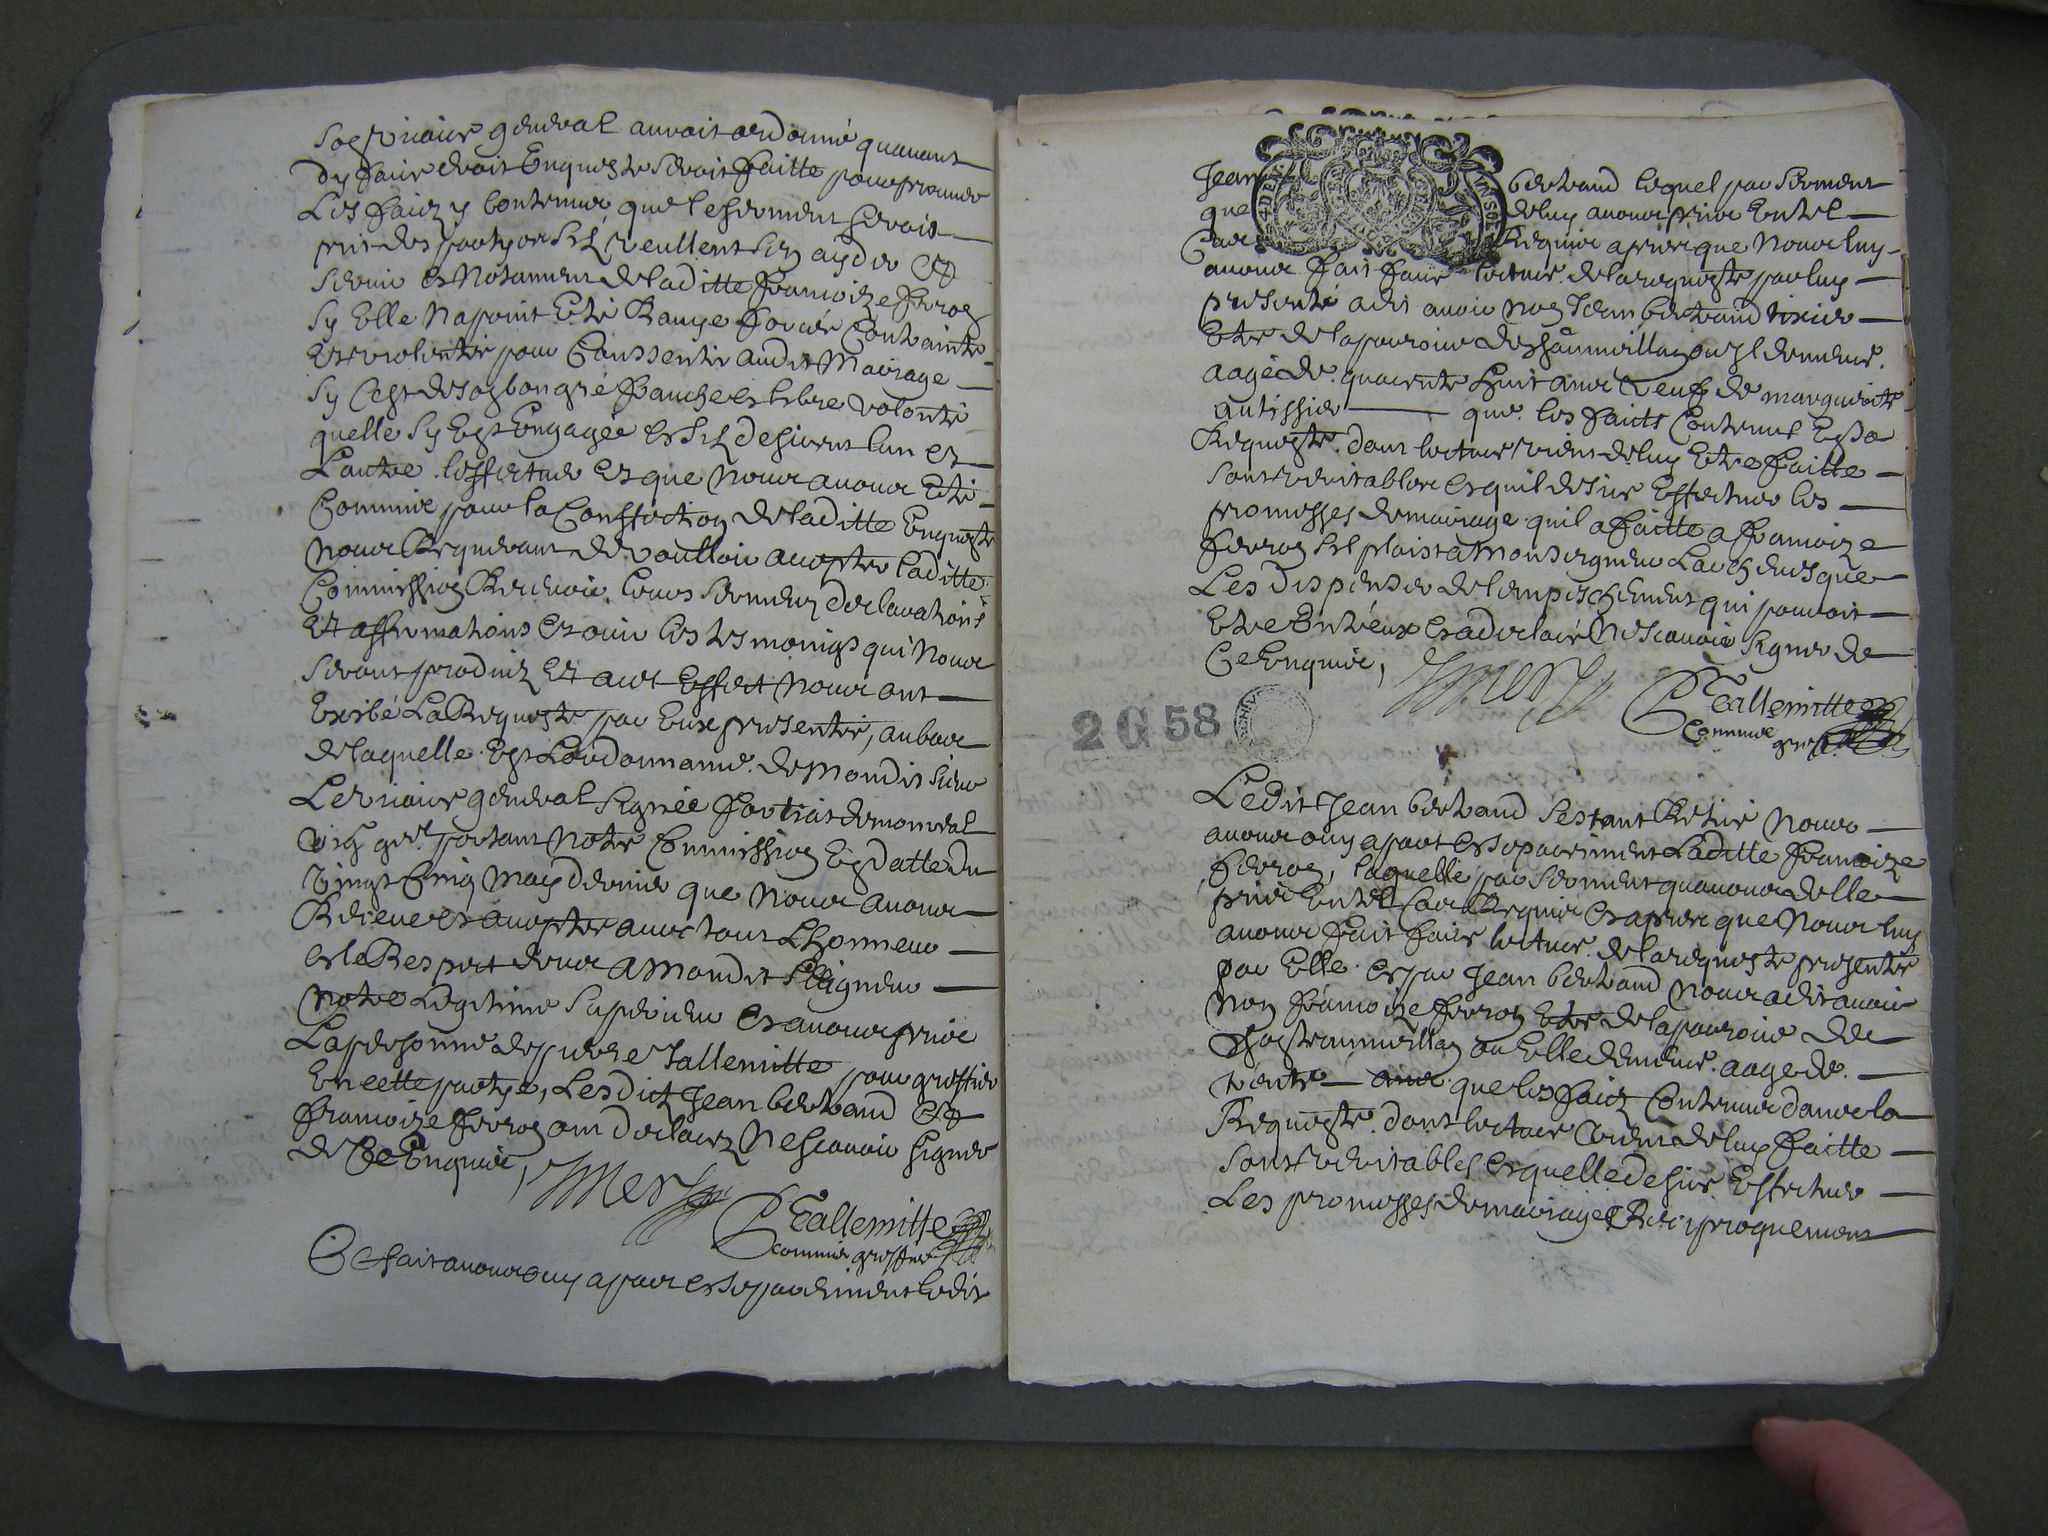 Son vicaire general auroit ordonné quauant
dy faire droit Enqueste seroit faitte pour prouuer
Les faicz y contenus que le serment seroit
pris des partyes silz veullent sen ayder Et
seruir et notamment de laditte francoize ferron
sy Elle na point Eté Rauye forcée Contrainte
Et violentée pour Conssentir audit Mariage
sy cest de son bon gré franche et libre volonté
quelle sy Est Engagée et silz desirent lun et
Lautre leffectuer et que Nous auons Eté
Commis pour la Conffection de laditte Enqueste
Nous Requerant de voulloir accepter laditte
Commission Receuoir leurs serment declarations
Et affirmations et ouir les tesmoings qui Nous
seront produiz Et a cet Effect Nous ont
Exibé La Requeste par Eux presentée, au bas
de laquelle Est Lordonnance de mondit sieur
Le vicaire general signée
vic gnl portant Notre Commission En datte du
vingt Cinq may dernier que Nous auons
Receue et accepter auec tout Lhonneur
et le Respect deue a Mondit seigneur
Notre Legitime superieur et auons pris
La personne de pierre Tallemitte pour greffier
En cette partye, Lesdictz Jean bertrand Et
francoize ferron ont declarez Ne scauoir signer
de Ce Enquis,
P Tallemitte
commis greffier
Ce fait auons ouy a part et separement ledit
Jean bertrand lequel par serment
que de luy auons pris En tel
Cas Requis apres que Nous luy
auons fait faire lecture de la requeste par luy
presenté a dit auoir nom Jean bertrand
Etre de la paroisse ou Il demeure
aagé de quarente huit ans veuf de marguerite
autissier que les faicts Contenus En sa
Requeste dont lecture vient de luy Etre faitte
sont veritables et quil desire Effectuer les
promesses de mariage quil a faitte a francoize
ferron sil plaist a Monseigneur Larcheuesque
Les dispenser de lempeschement qui pouroit
Etre Entreux et a declaré Ne scauoir signer de
Ce Enquis,
P Tallemitte
Commis
greffier
2 G 58
Ledit Jean bertrand sestant Retiré Nous
auons ouy a part et separement Laditte francoize
ferron, laquelle par serment quauons delle
pris En tel Cas Requis et apres que Nous luy
auons fait faire lecture de la requeste presentée
par Elle et par Jean bertrand Nous a dit auoir
Nom francoize ferron Etre de la paroisse de
ou Elle demeure aagé de
trente ans que les faicz Contenus dans la
Requeste dont lecture vient de luy faitte
sont veritables et quelle desire Effectuer
Les promesses de mariages Reciproquement